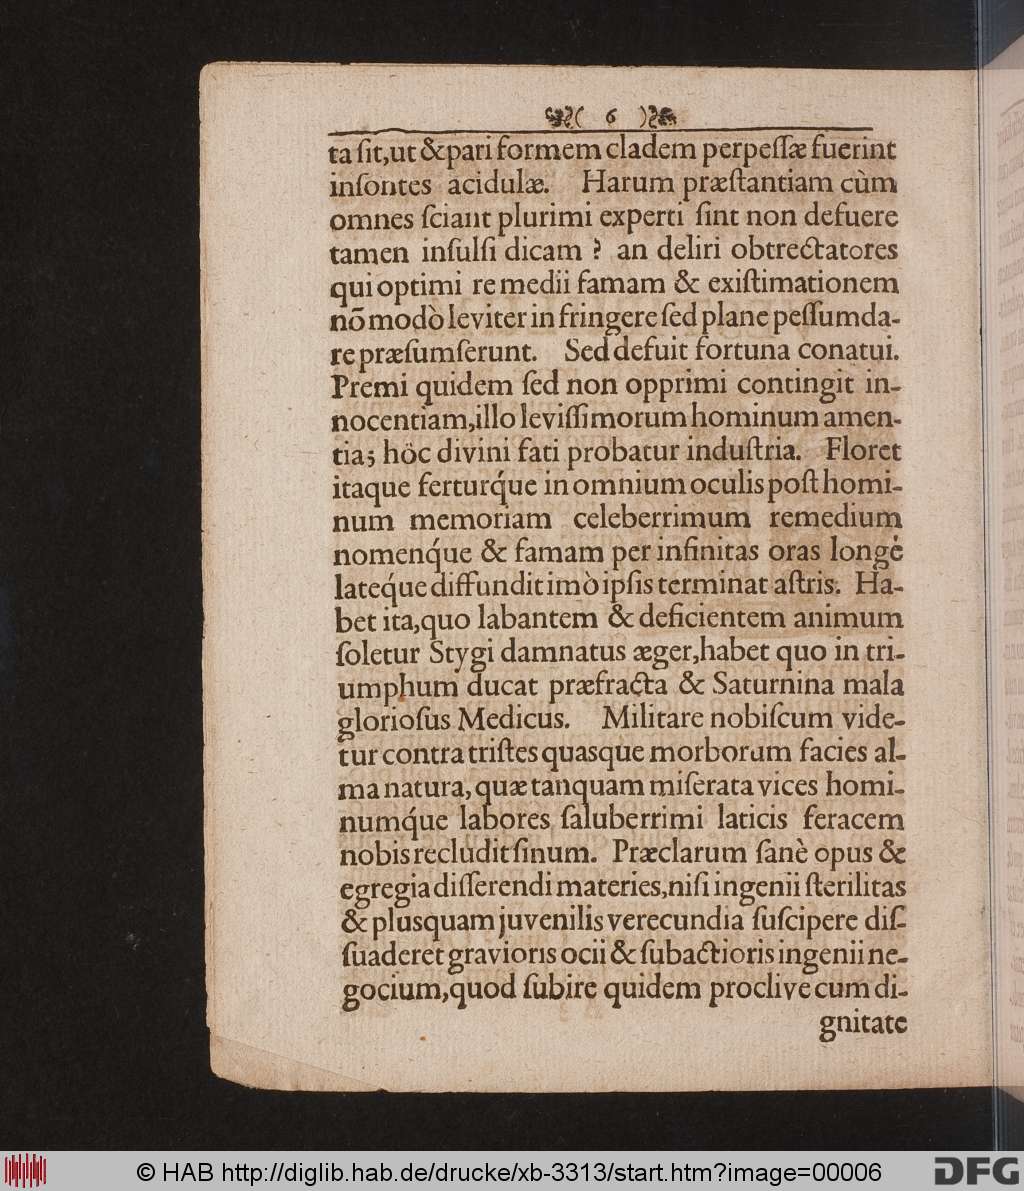 ( 6 )
ta ſit, ut & pari formem cladem perpeſſæ fuerint
inſontes acidulæ. Harum præſtantiam cùm
omnes ſciant plurimi experti ſint non defuere
tamen inſulſi dicam ? an deliri obtrectatores
qui optimi remedii famam & exiſtimationem
nõ modò leviter in fringere ſed plane peſſumda-
re præſumſerunt. Sed defuit fortuna conatui.
Premi quidem ſed non opprimi contingit in-
nocentiam, illo leviſſimorum hominum amen-
tia; höc divini fati probatur induſtria. Floret
itaque ferturq́ue in omnium oculis poſt homi-
num memoriam celeberrimum remedium
nomenq́ue & famam per infinitas oras longé
lateq́ue diffundit imò ipſis terminat aſtris. Ha-
bet ita, quo labantem & deficientem animum
ſoletur Stygi damnatus æger, habet quo in tri-
umphum ducat præfracta & Saturnina mala
glorioſus Medicus. Militare nobiſcum vide-
tur contra triſtes quasque morborum facies al-
ma natura, quæ tanquam miſerata vices homi-
numq́ue labores ſaluberrimi laticis feracem
nobis recludit ſinum. Præclarum ſanè opus &
egregia diſſerendi materies, niſi ingenii ſterilitas
& plusquam juvenilis verecundia ſuſcipere diſ-
ſuaderet gravioris ocii & ſubactioris ingenii ne-
gocium, quod ſubire quidem proclive cum di-
gnitate
© HAB http://diglib.hab.de/drucke/xb-3313/start.htm?image=00006
DFG